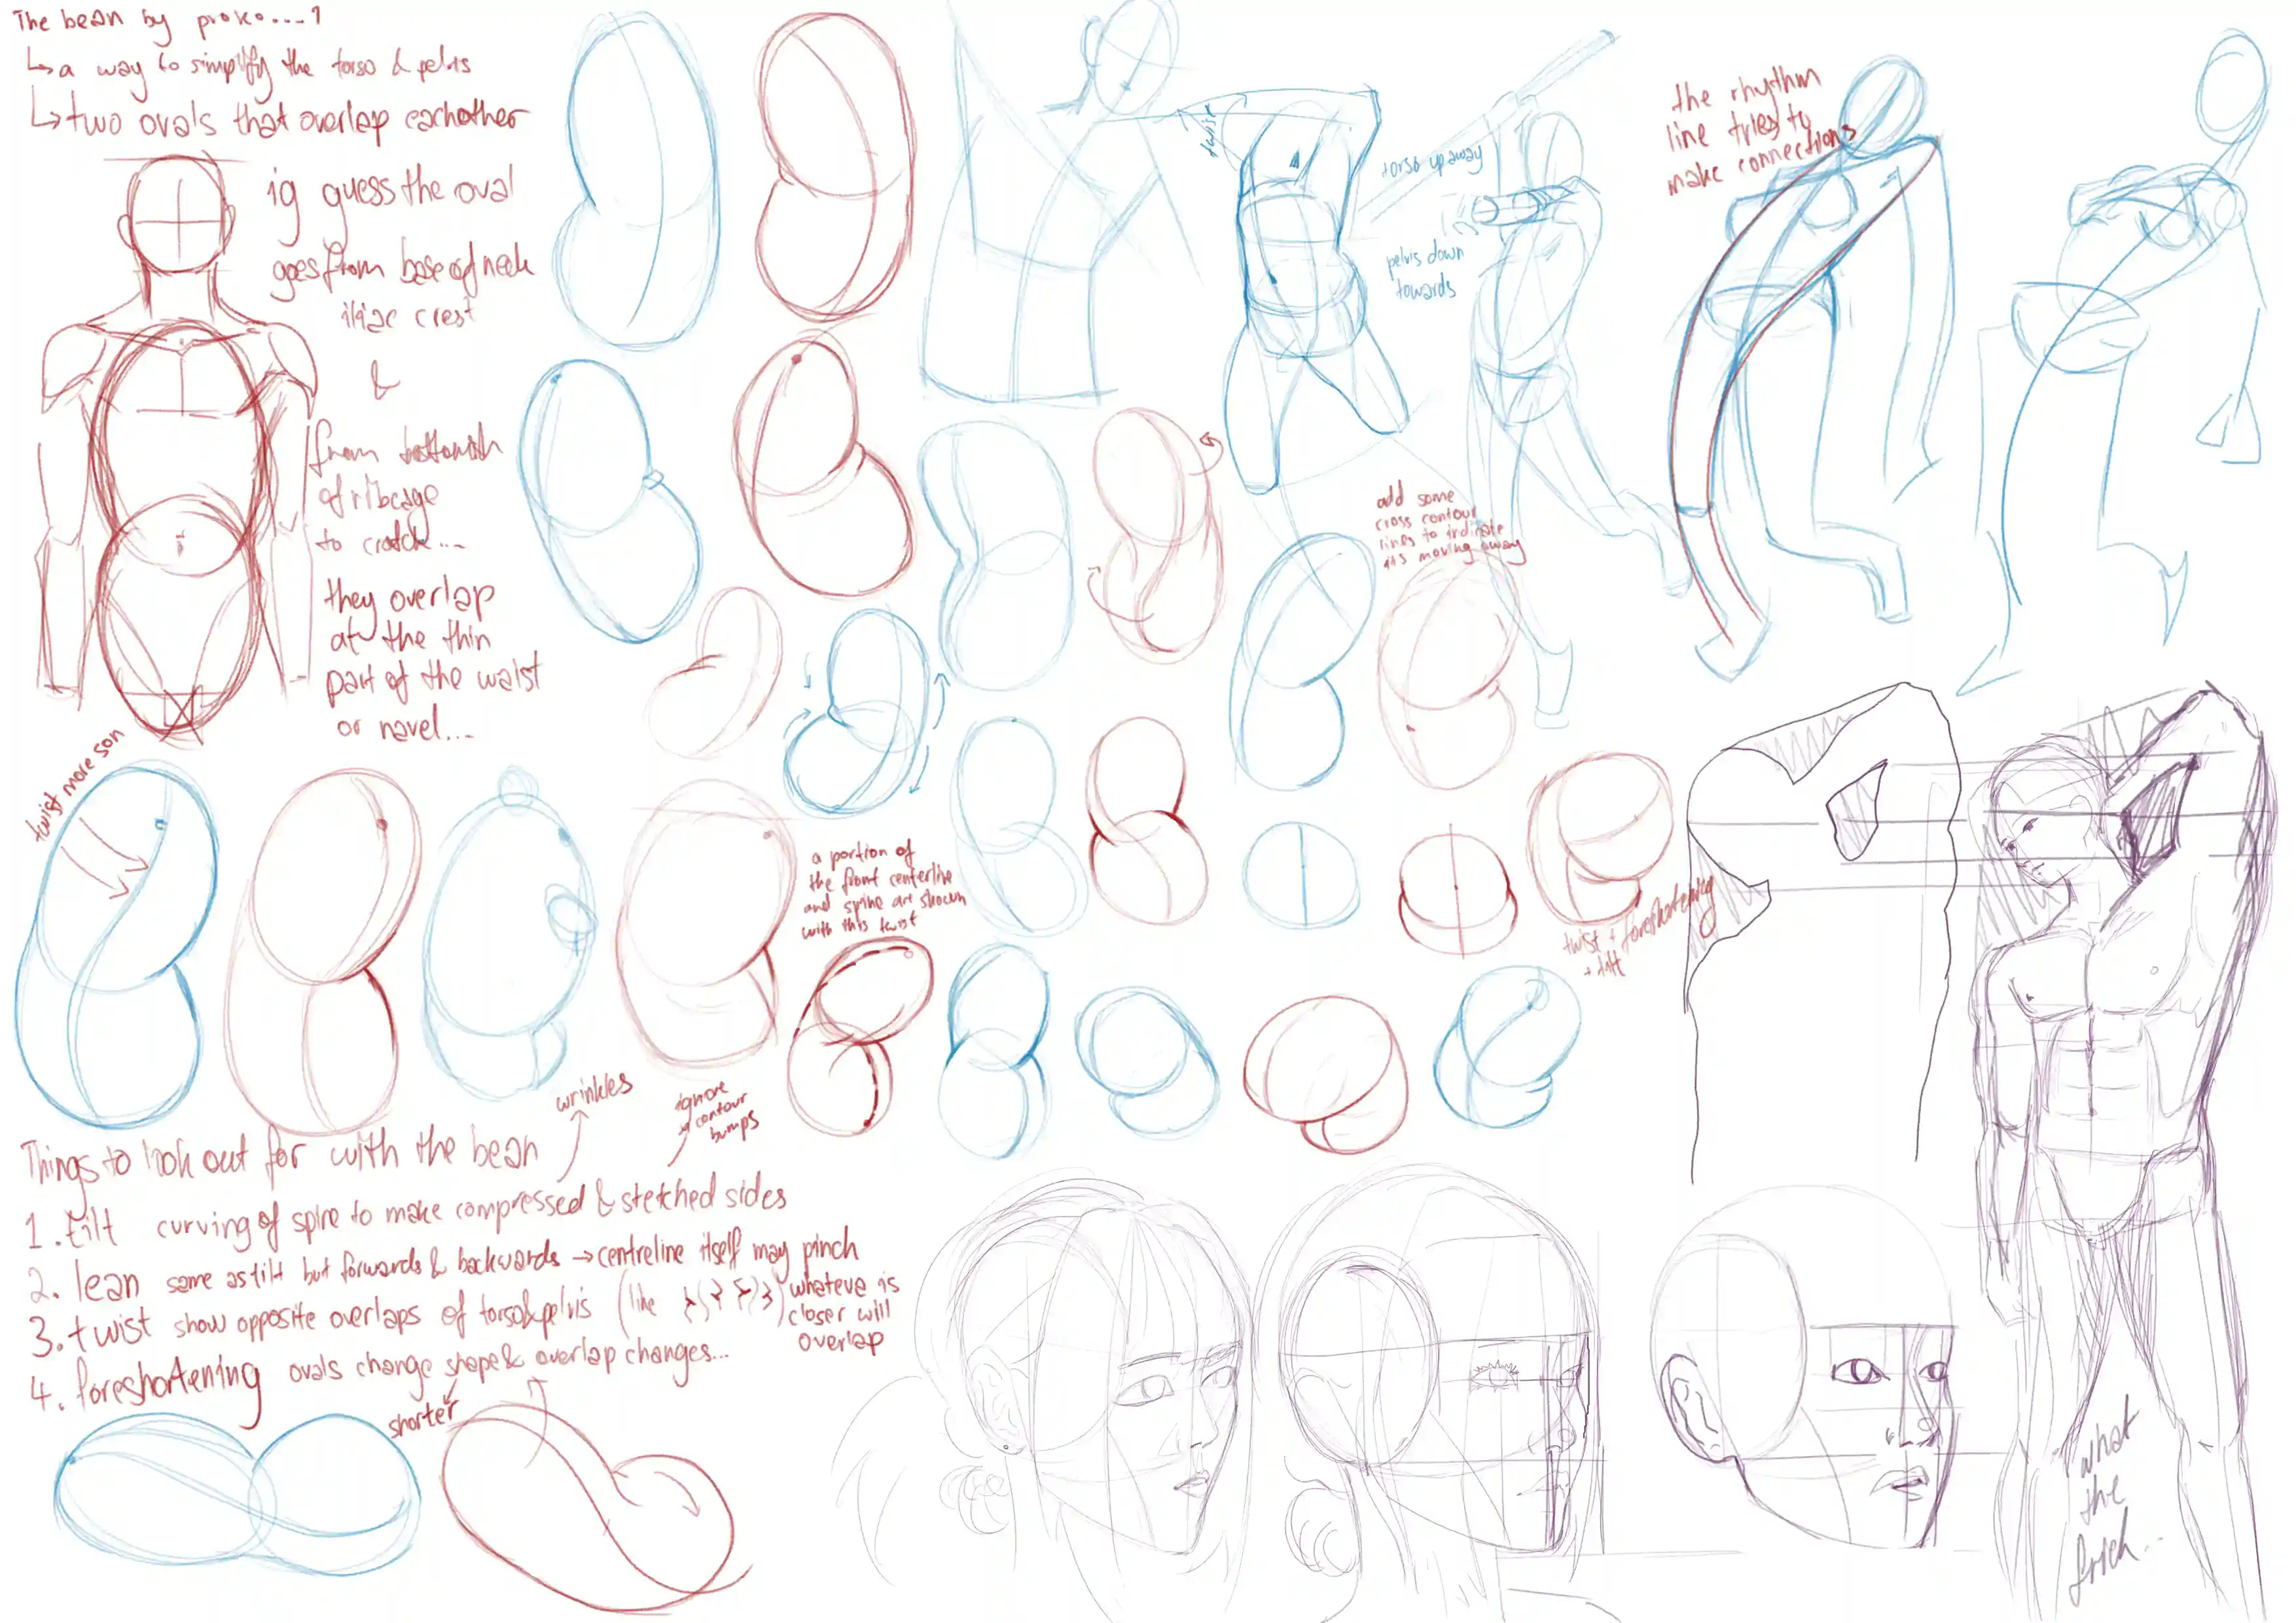 The bean by proko....1
↳a way to simplify the torso & pelvis
↳two ovals that overlap eachother
ig guess the oval
goes from base of neck
iliac crest
&
from bottomish
of ribcage
to crotch...
they overlap
at the thin
part of the waist
or navel...
twist
torso up away
pelvis down
towards
the rhythm
line tries to
make connections
add some
cross contour
lines to indicate
its moving away
twist more son
a portion of
the front centerline
and spine are shown
with this twist
twist + foreshortening
+ tilt
wrinkles
ignore
contour
bumps
Things to look out for with the bean
1. tilt curving of spine to make compressed & stretched sides
2. lean same as tilt but forwards & backwards → centreline itself may pinch
3. twist show opposite overlaps of torso & pelvis (like
whateve is
closer will
overlap
4. foreshortening ovals change shape & overlap changes...
shorter
what
the
frick...